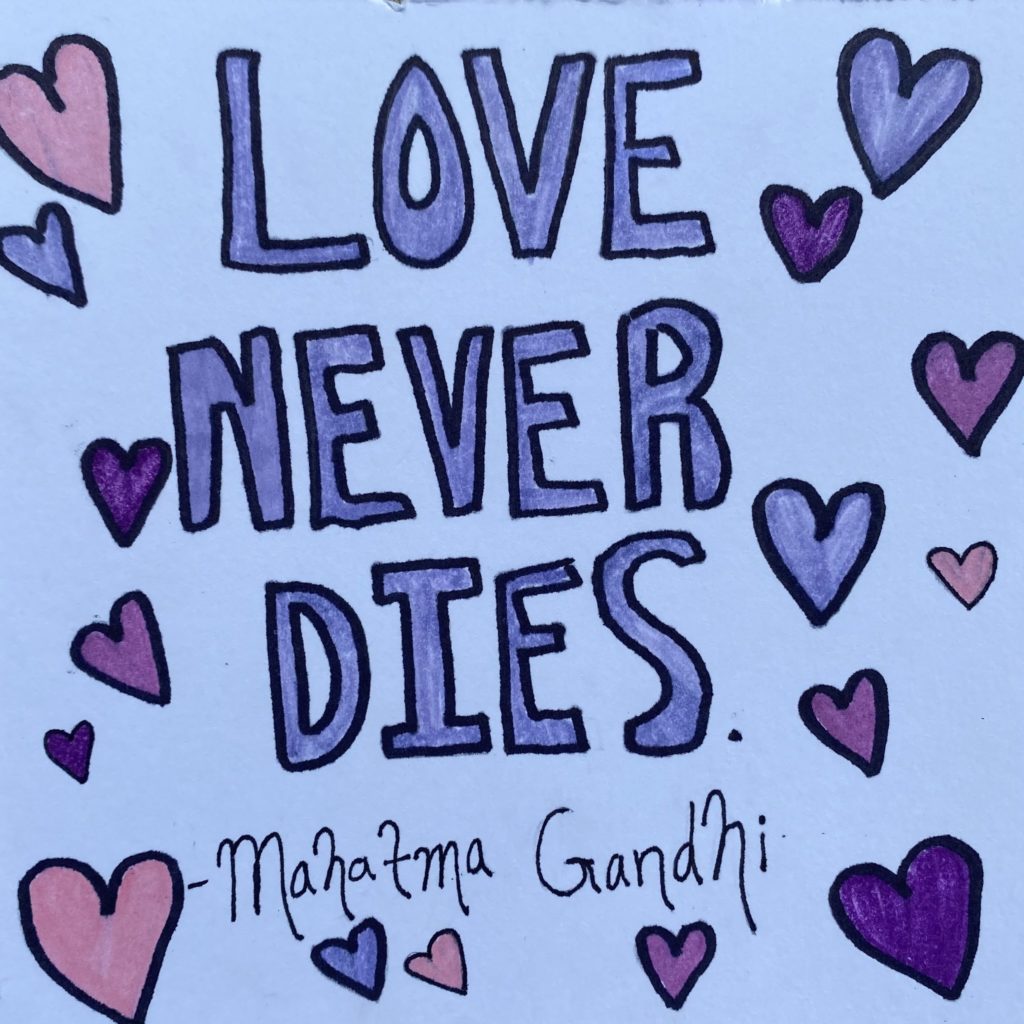 LOVE
NEVER
DIES.
-Mahatma Gandhi